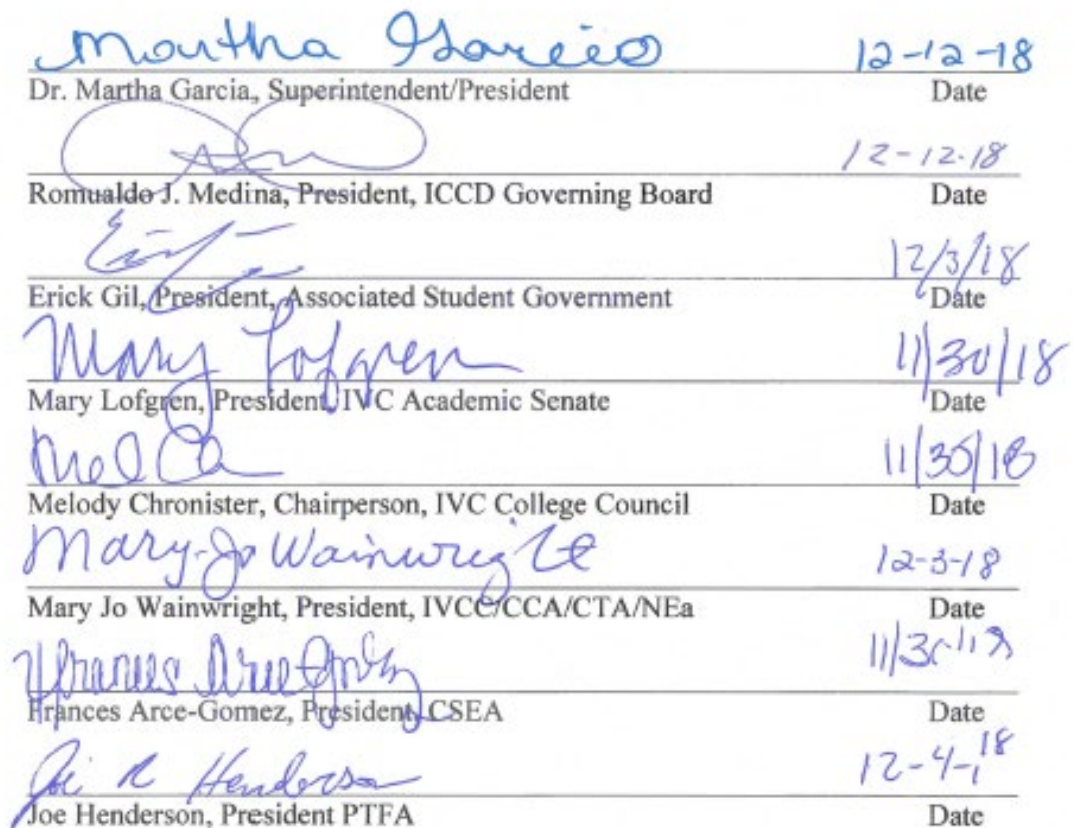 Martha Garcia 12-12-18
Dr. Martha Garcia, Superintendent/President Date
12-12-18
Romualdo J. Medina, President, ICCD Governing Board Date
12/3/18
Erick Gil, President, Associated Student Government Date
Mary Lofgren 11/30/18
Mary Lofgren, President, IVC Academic Senate Date
11/30/18
Melody Chronister, Chairperson, IVC College Council Date
Mary-Jo Wainwright 12-3-18
Mary Jo Wainwright, President, IVCC/CCA/CTA/NEa Date
Frances Arce-Gomez, President, CSEA Date
Joe R Henderson 12-4-18
Joe Henderson, President PTFA Date